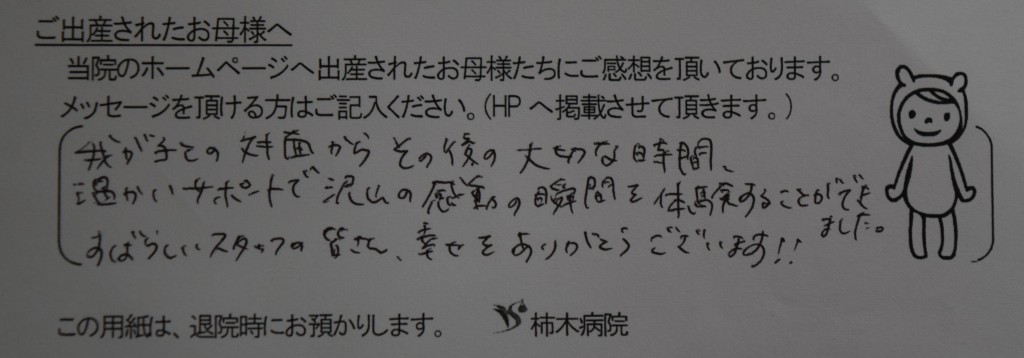 ご出産されたお母様へ
当院のホームページへ出産されたお母様たちにご感想を頂いております。
メッセージを頂ける方はご記入ください。(HP へ掲載させて頂きます。)
我が子との対面からその後の大切な時間、
温かいサポートで沢山の感動の瞬間を体験することができ
ました。
すばらしいスタッフの皆さん、幸せをありがとうございます!!
この用紙は、退院時にお預かりします。
柿木病院